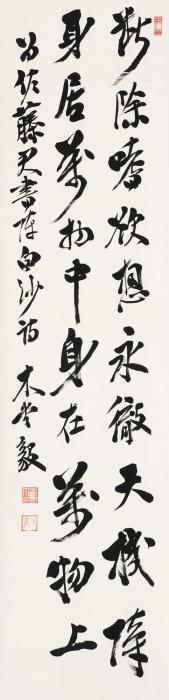 斷除嗜欲想永徹天機障
身居萬物中身在萬物上
為佐藤君書陳白沙詩 木堂毅